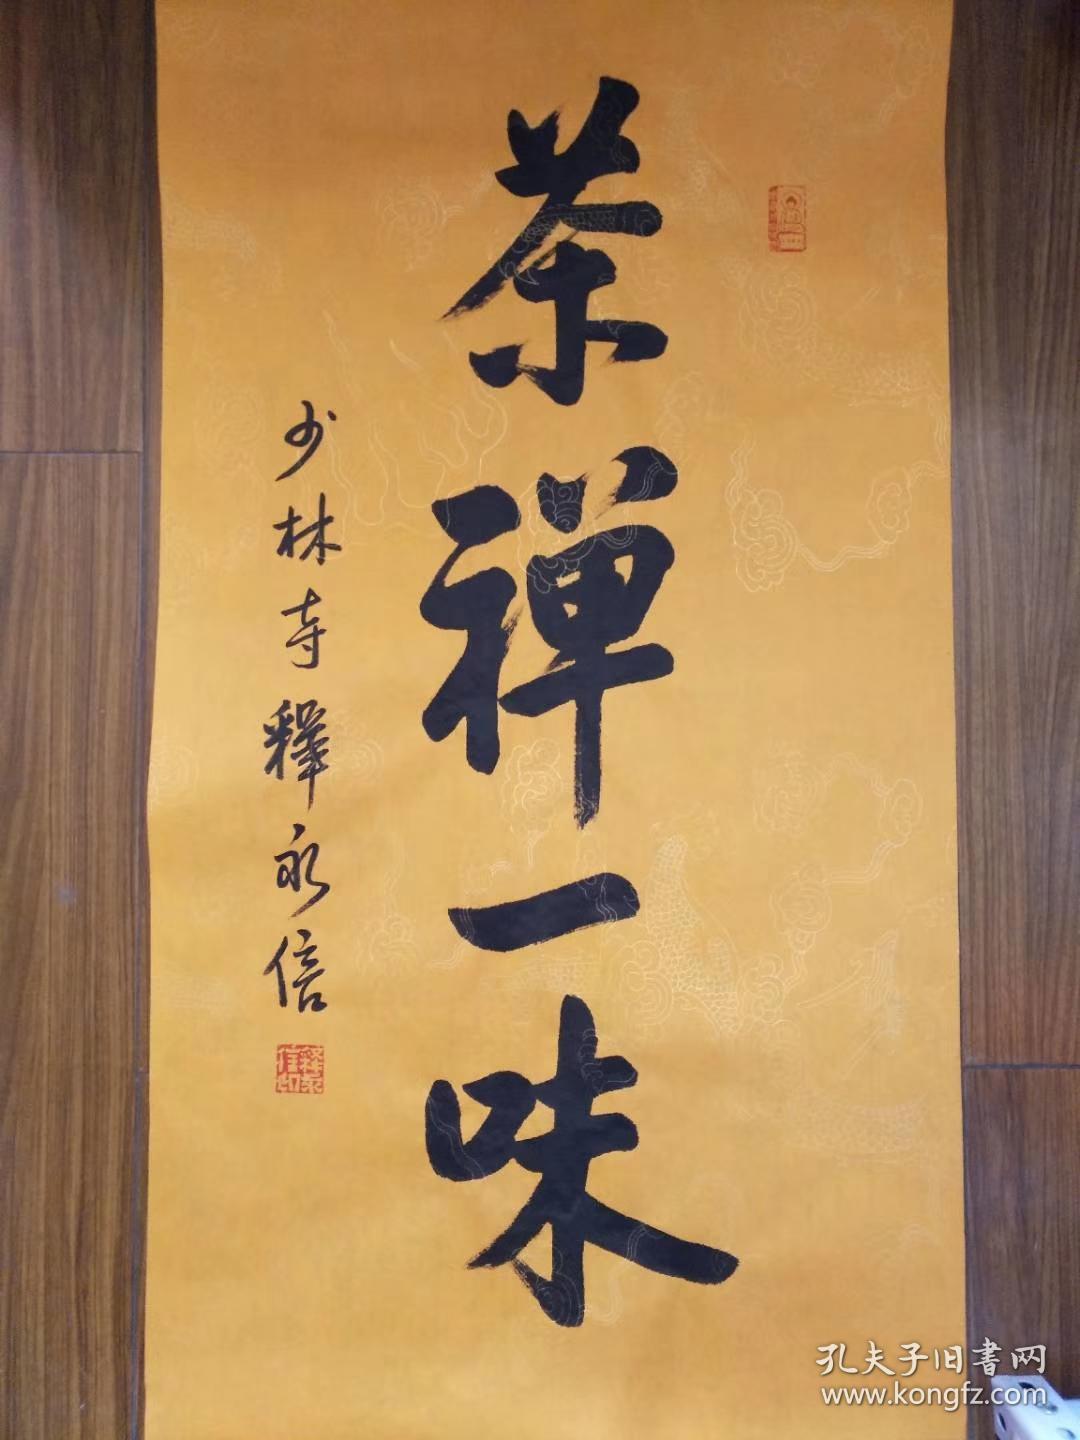 茶禅一味
少林寺釋永信
释永信印
孔夫子旧書网
www.kongfz.com